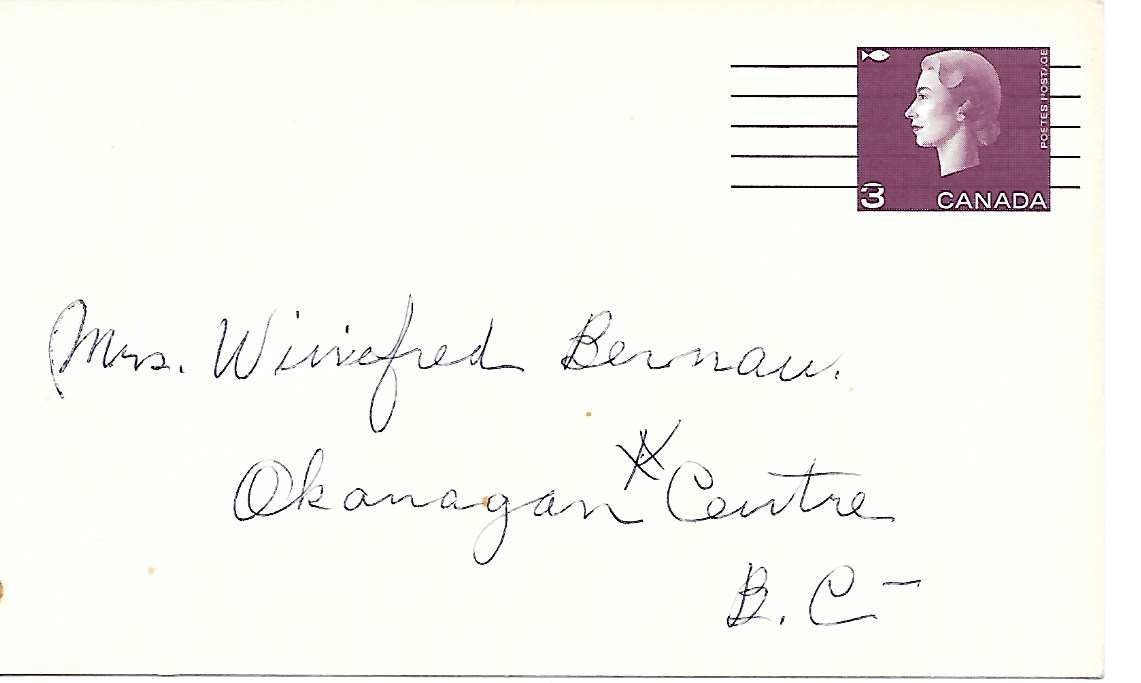 POSTES POSTAGE
3 CANADA
Mrs. Winifred Bernau.
Okanagan Centre
B. C -